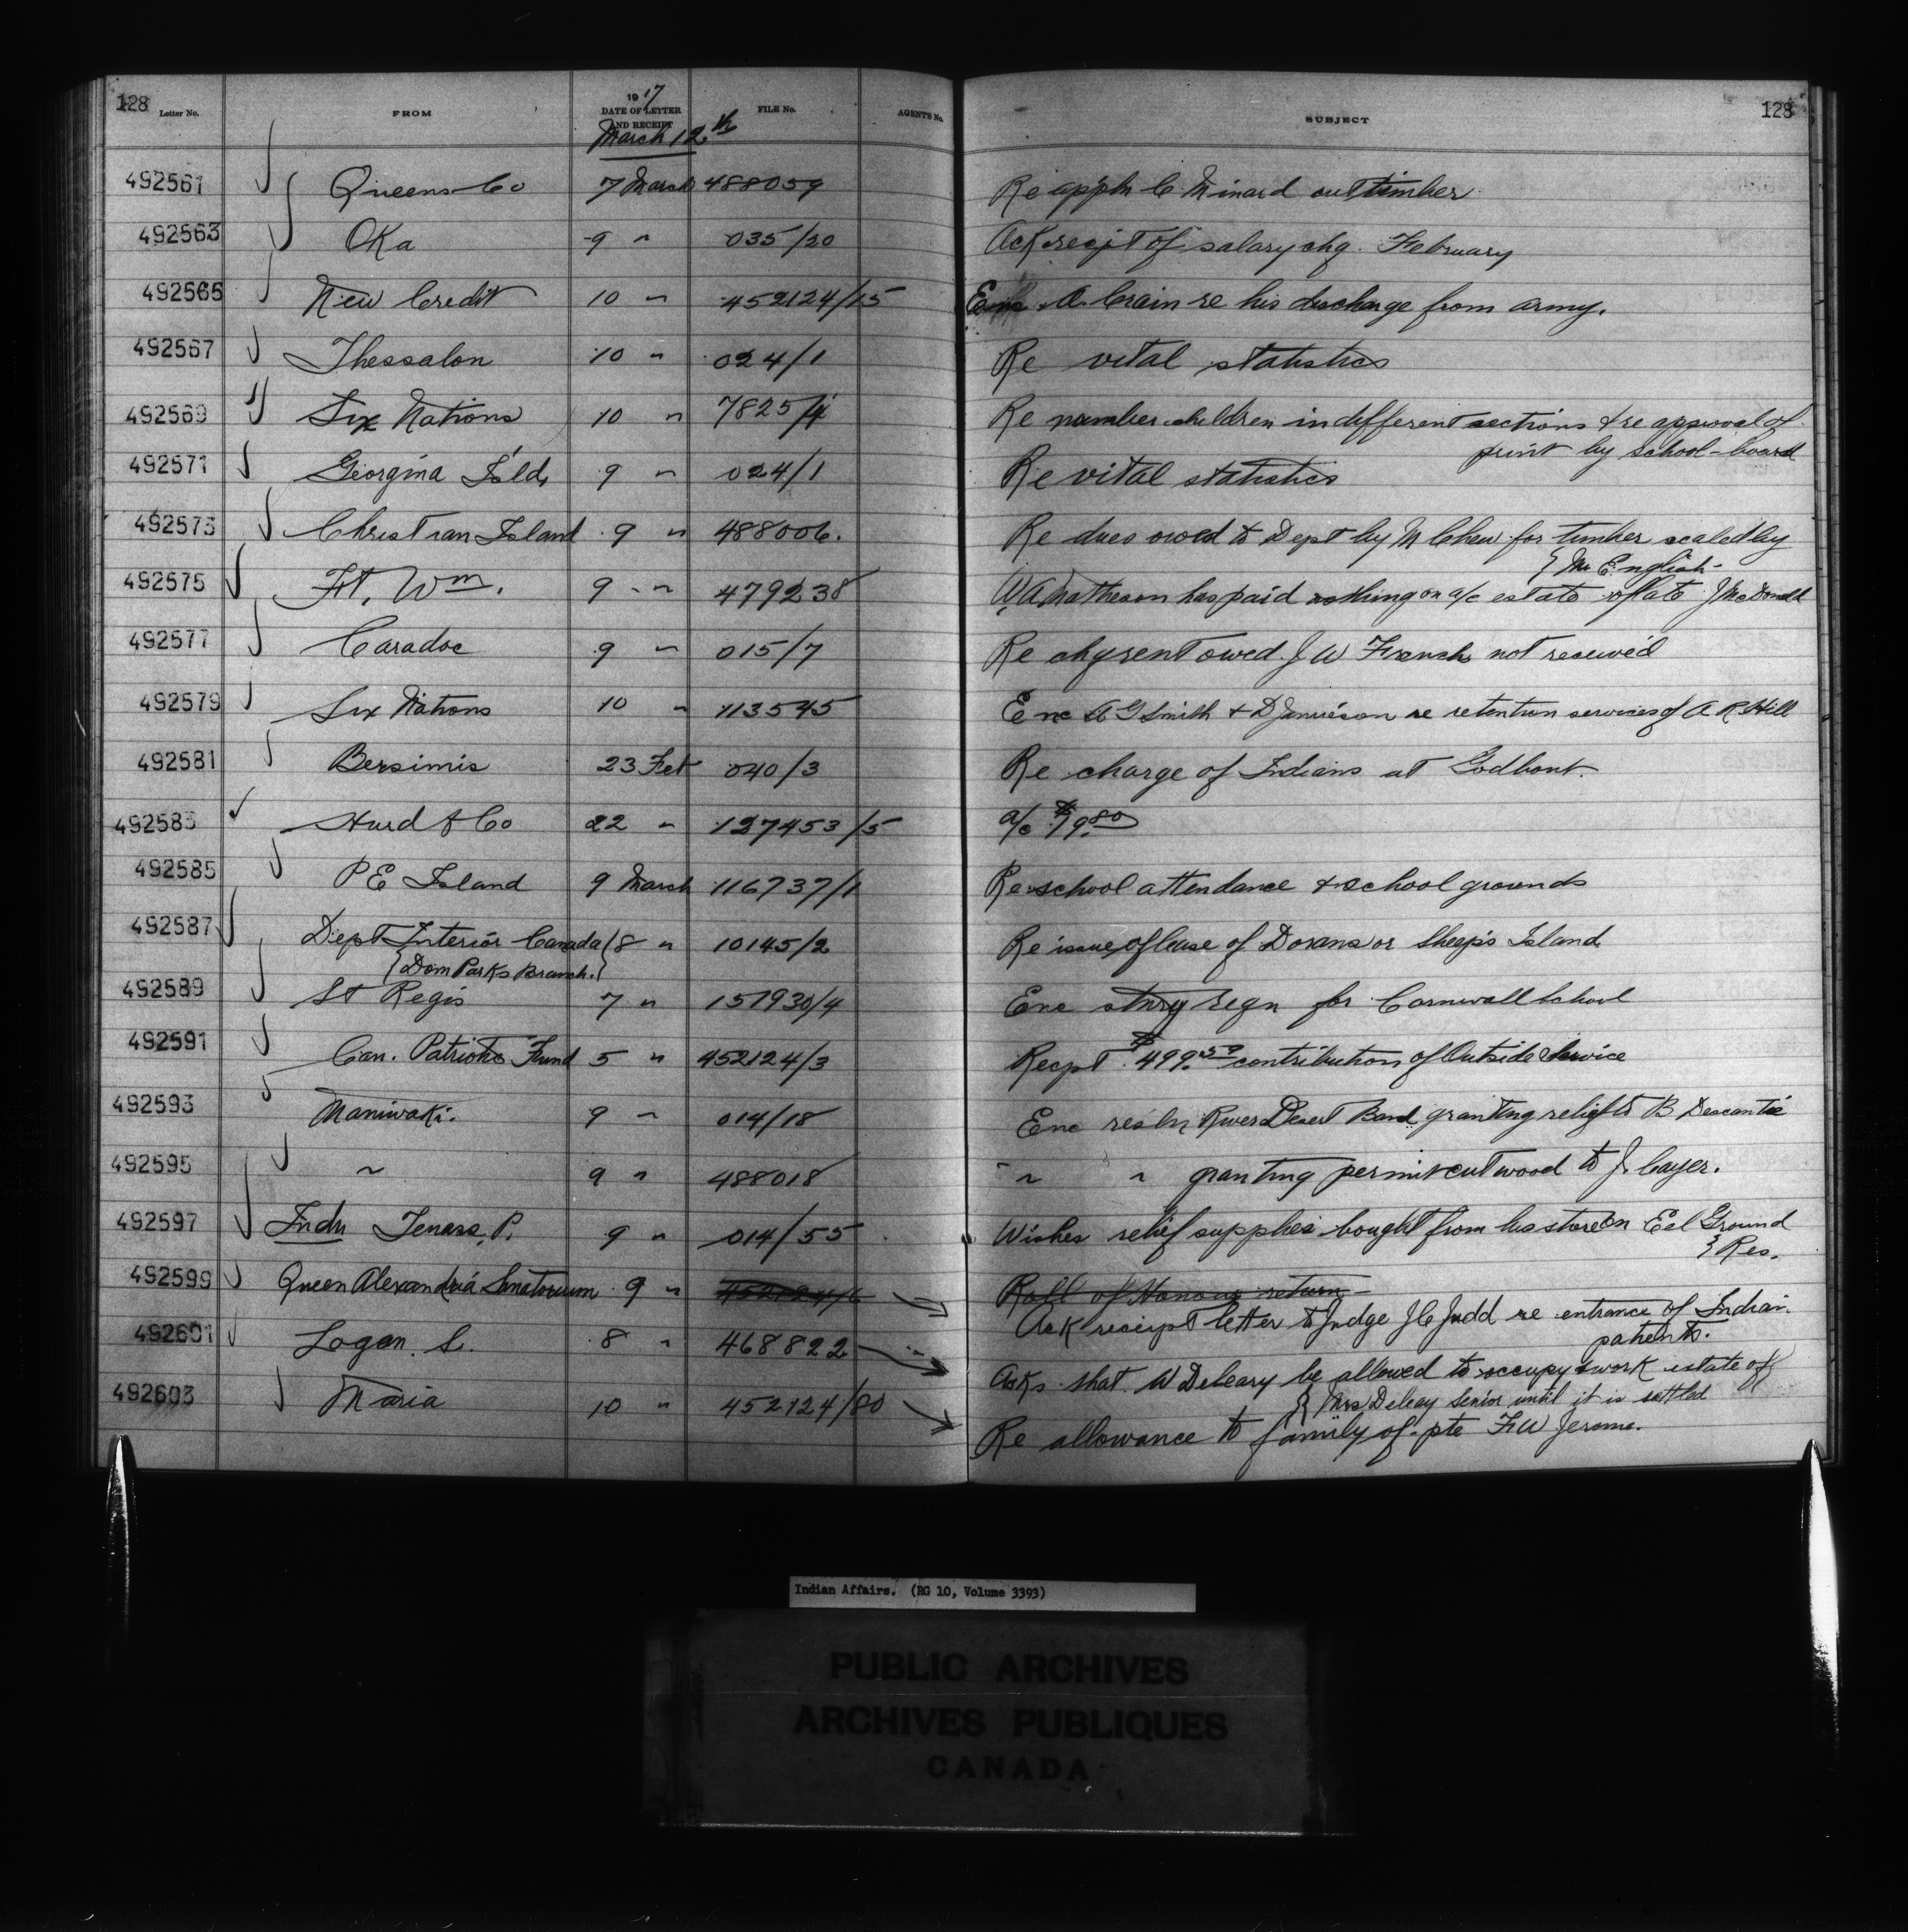 128
Letter No. FROM 1917 DATE OF LETTER AND RECEIPT FILE No. AGENTS No. SUBJECT 128
March 12th
492561 Queens Co 7 March 488059 Re appln C Minard cut timber
492563 Oka 9 " 035/20 Ack recpt of salary chq. February
492565 New Credit 10 " 452124/15 Enc A. Crain re his discharge from army.
492567 Thessalon 10 " 024/1 Re vital statistics
492569 Six Nations 10 " 7825/4 Re number children in different sections & re approval of
print by school-board
492571 Georgina Isld, 9 " 024/1 Re vital statistics
492573 Christian Island 9 " 488006. Re dues owed to Dept by M Chew for timber scaled by
} Mr English
492575 Ft. Wm. 9 " 479238 W A Matheson has paid nothing on a/c estate of late J McDonald
492577 Caradoc 9 " 015/7 Re chq rent owed J W French not received
492579 Six Nations 10 " 113545 Enc A G Smith & D Jamieson re retention services of A R Hill
492581 Bersimis 23 Feb 040/3 Re charge of Indians at Godbout.
492583 Hurd & Co 22 " 127453/5 a/c $79.80
492585 P E Island 9 March 116737/1 Re school attendance & school grounds
492587 Dept Interior Canada 8 " 10145/2 Re issue of lease of Dorans or Sheeps Island
{Dom Parks Branch.}
492589 St Regis 7 " 151930/4 Enc stnry reqn for Cornwall School
492591 Can. Patriotic Fund 5 " 452124/3 Recpt $499.50 contribution of Outside Service
492593 Maniwaki. 9 " 014/18 Enc resln River Desert Band granting relief to B Descantie
492595 " 9 " 488018 " " granting permit cut wood to J. Cayer.
492597 Indn Tenass, P. 9 " 014/55 Wishes relief supplies bought from his store on Eel Ground
} Res.
492599 Queen Alexandria Sanatorium 9 " 452124/6 Roll of Honour return
Ack receipt letter to Judge J C Judd re entrance of Indian
patients.
492601 Logan. S. 8 " 468822 Asks that W Deleary be allowed to occupy & work estate of
} Mrs Deleay Senior until it is settled
492603 Maria 10 " 452124/80 Re allowance to family of pte F W Jerome.
Indian Affairs. (RG 10, Volume 3393)
PUBLIC ARCHIVES
ARCHIVES PUBLIQUES
CANADA